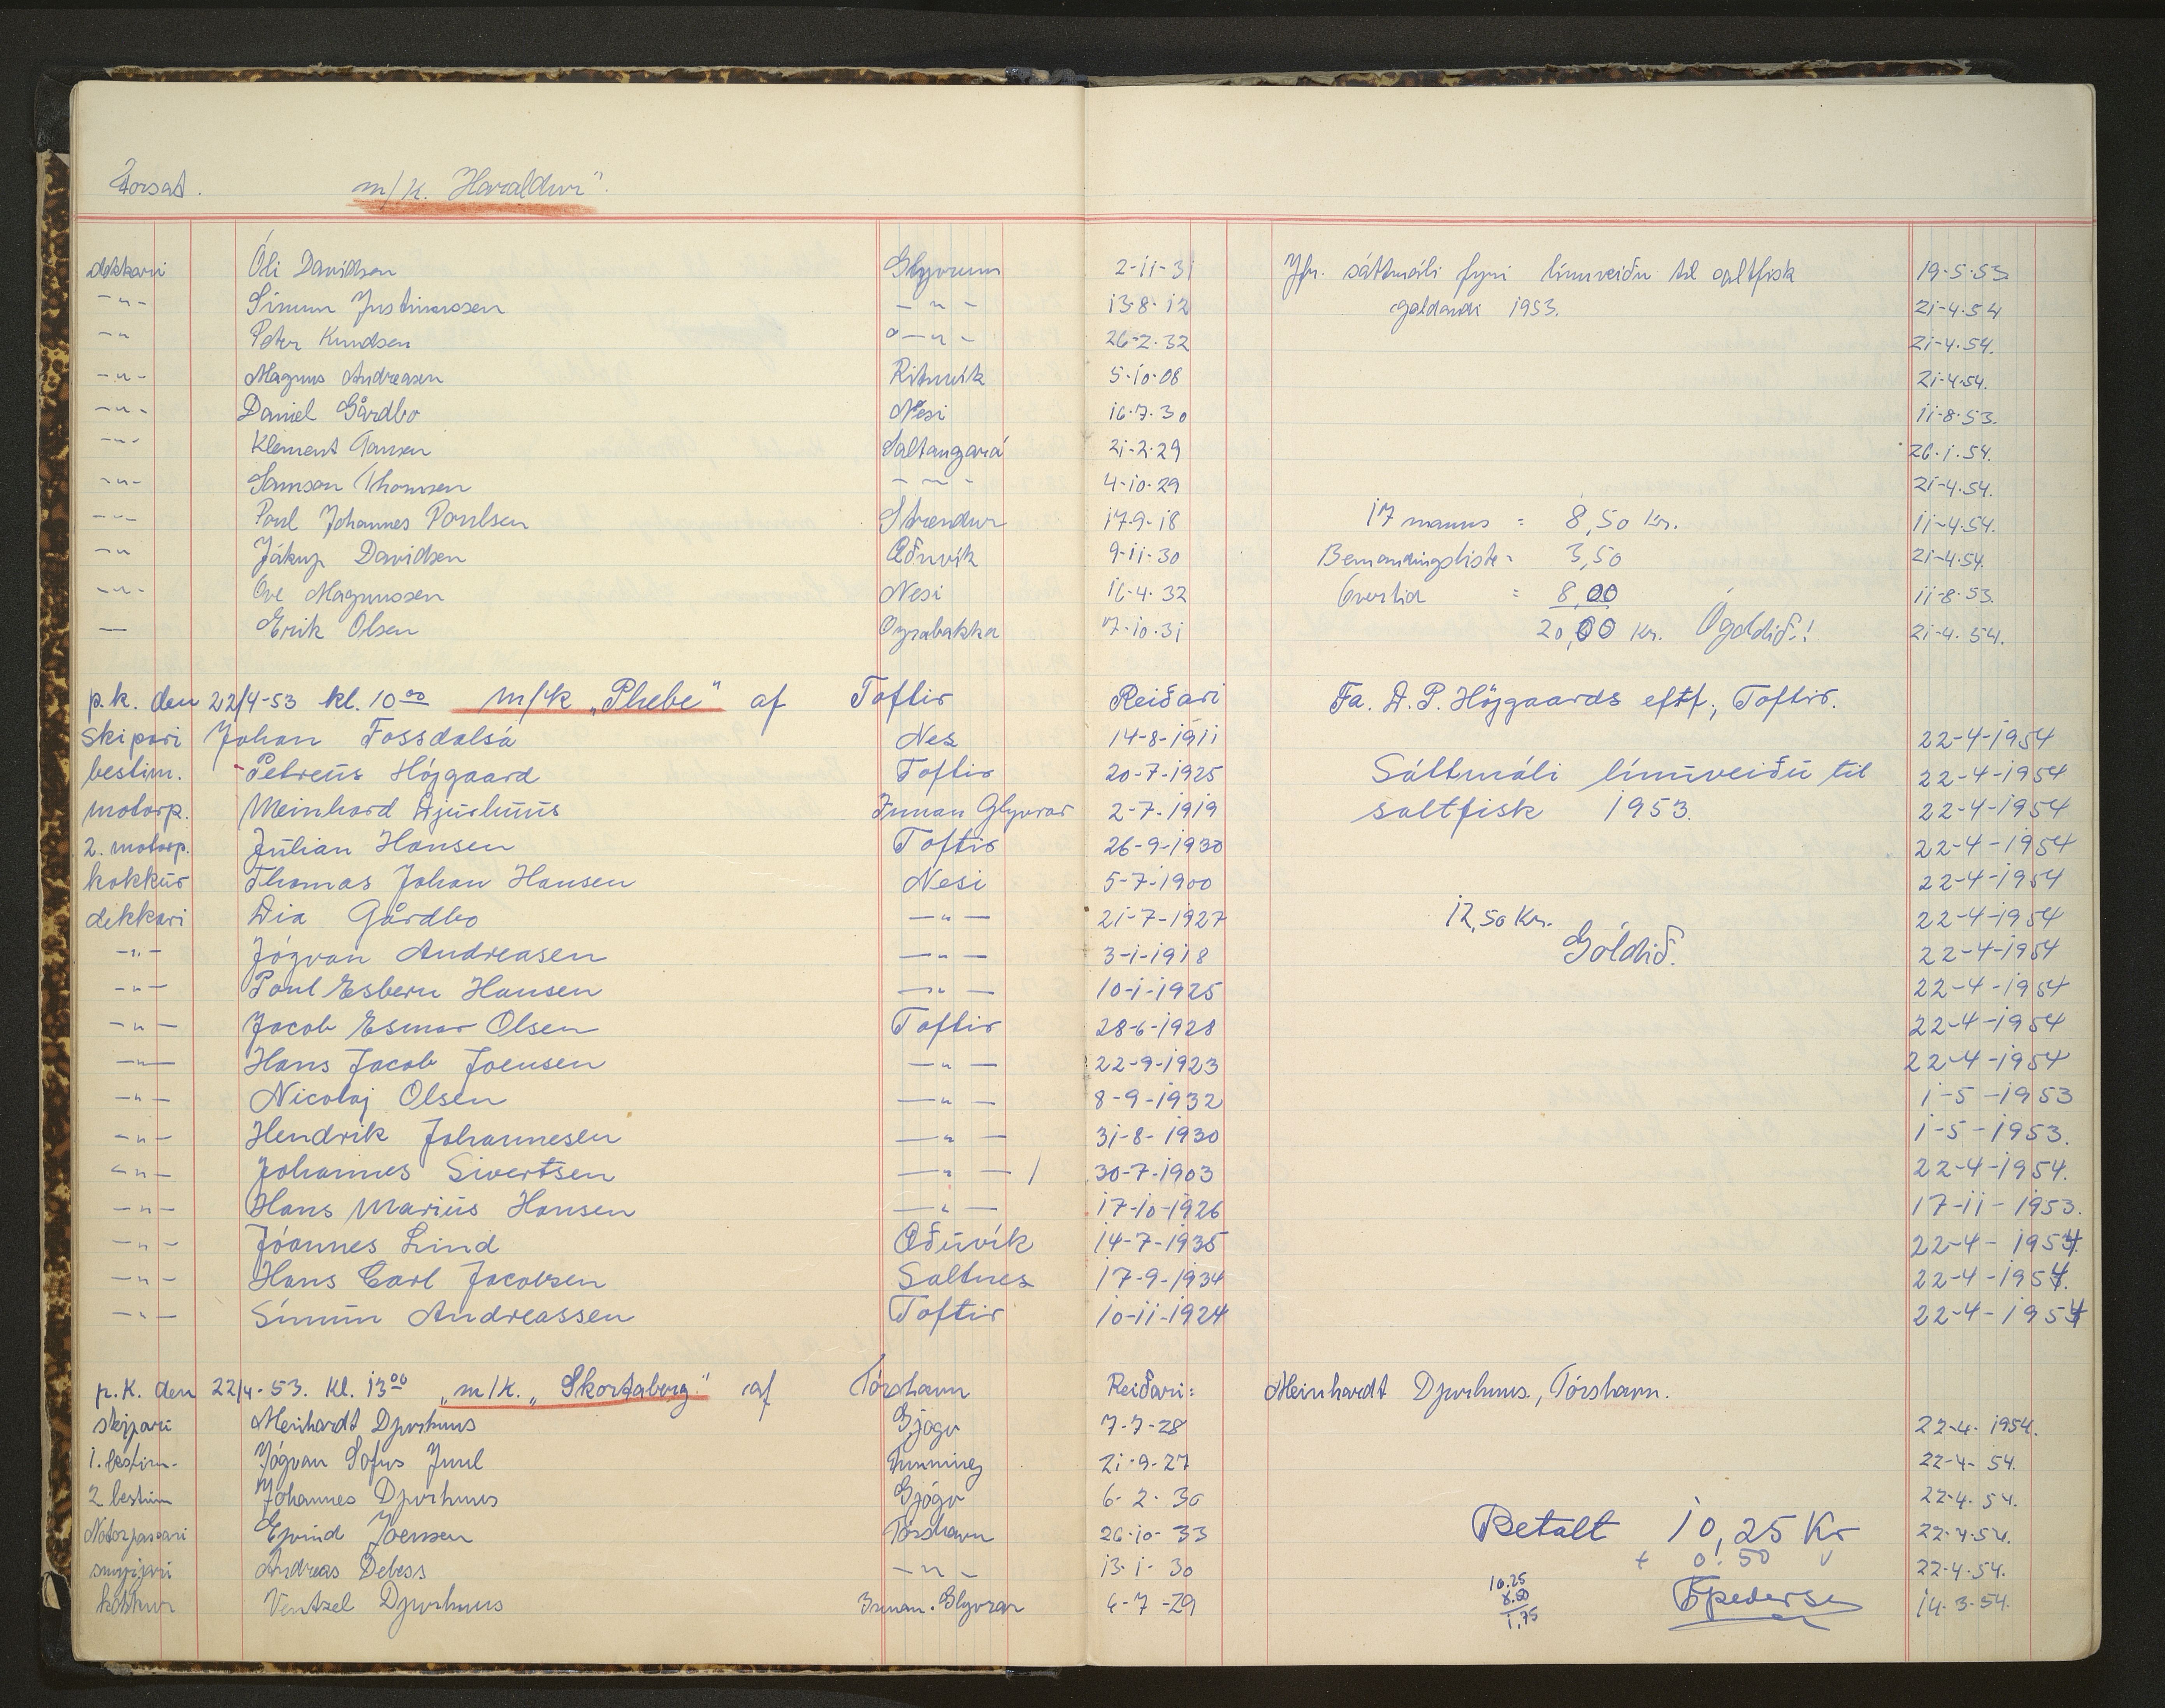 Forsat. m/k. Haraldur".
dekkari Óli Davidsen Glyvrum 2-11-31 Jfr. sáttmáli fyri línuveiðu til saltfisk 19-5-53.
-"- Símun Justinussen -"- 13-8-12 galdandi 1953. 21-4-54
-"- Peter Knudsen -"- 26-2-32 21-4-54.
-"- Magnus Andreasen Rituvík 5-10-08 21-4-54.
-"- Daniel Gårdbo Nesi 16-7-30 11-8-53.
-"- Klement Hansen Saltangará 21-2-29 26-1-54.
-"- Samson Thomsen -"- 4-10-29 21-4-54.
-"- Poul Johannes Poulsen Strendur 17-9-18 17 manns = 8,50 Kr. 11-4-54.
-"- Jákup Davidsen Æðuvík 9-11-30 Bemandingsliste = 3,50 21-4-54.
-"- Ove Magnussen Nesi 16-4-32 Overtid = 8,00 11-8-53.
— Erik Olsen Oyrabakka 7-10-31 20,00 Kr. Ógoldið! 21-4-54.
p.k. den 22/4-53 kl. 10⁰⁰ m/k „Phebe" af Toftir Reiðari Fa. D. P. Højgaards eftf., Toftir.
skipari Johan Fossdalsá Nes 14-8-1911 22-4-1954
bestim. Petreus Højgaard Toftir 20-7-1925 Sáttmáli línuveiðu til 22-4-1954
motorp. Meinhard Djurhuus Innan Glyvrar 2-7-1919 saltfisk 1953. 22-4-1954
2. motorp. Julian Hansen Toftir 26-9-1930 22-4-1954
kokkur Thomas Johan Hansen Nesi 5-7-1900 22-4-1954
dekkari Dia Gårdbo -"- 21-7-1927 12,50 Kr. 22-4-1954
-"- Jógvan Andreasen -"- 3-1-1918 Goldið. 22-4-1954
-"- Poul Esbern Hansen -"- 10-1-1925 22-4-1954
-"- Jacob Esmar Olsen Toftir 28-6-1928 22-4-1954
-"- Hans Jacob Joensen -"- 22-9-1923 22-4-1954
-"- Nicolaj Olsen -"- 8-9-1932 1-5-1953
-"- Hendrik Johannesen -"- 31-8-1930 1-5-1953.
-"- Johannes Sivertsen -"- / 30-7-1903 22-4-1954.
-"- Hans Marius Hansen -"- 17-10-1926 17-11-1953.
-"- Jóannes Lind Æðuvík 14-7-1935 22-4-1954.
-"- Hans Carl Jacobsen Saltnes 17-9-1934 22-4-1954.
-"- Símun Andreassen Toftir 10-11-1924 22-4-1954
p.k. den 22/4-53. Kl. 13⁰⁰ „m/k. „Skortaberg." af Tórshavn Reiðari: Meinhardt Djurhuus., Tórshavn.
skipari Meinhardt Djurhuus Gjógv 7-7-28 22-4-1954.
1. bestim. Jógvan Sofus Juul Funning 21-9-27 22-4-54.
2 bestim Johannes Djurhuus Gjógv 6-2-30 22-4-54.
Motorpassari Eyvind Joensen Tórshavn 26-10-33 Betalt 10,25 Kr 22-4-54.
smyrjari Andreas Debess -"- 13-1-30 + 0.50 22-4-54.
kokkur Ventzel Djurhuus Innan. Glyvrar 6-7-29 10.25 8.50 1,75 Pedersen 14-3-54.